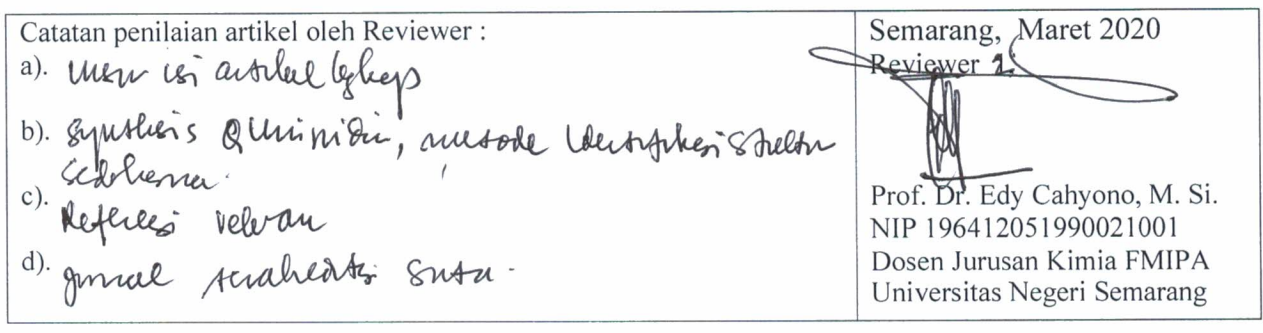 Catatan penilaian artikel oleh Reviewer :
a). isi artikel lengkap
b). Synthesis Quinidin, metode identifikasi struktur
sederhana.
c). Referensi relevan
d). jurnal terakreditasi sinta.
Semarang, Maret 2020
Reviewer 1.
Prof. Dr. Edy Cahyono, M. Si.
NIP 196412051990021001
Dosen Jurusan Kimia FMIPA
Universitas Negeri Semarang